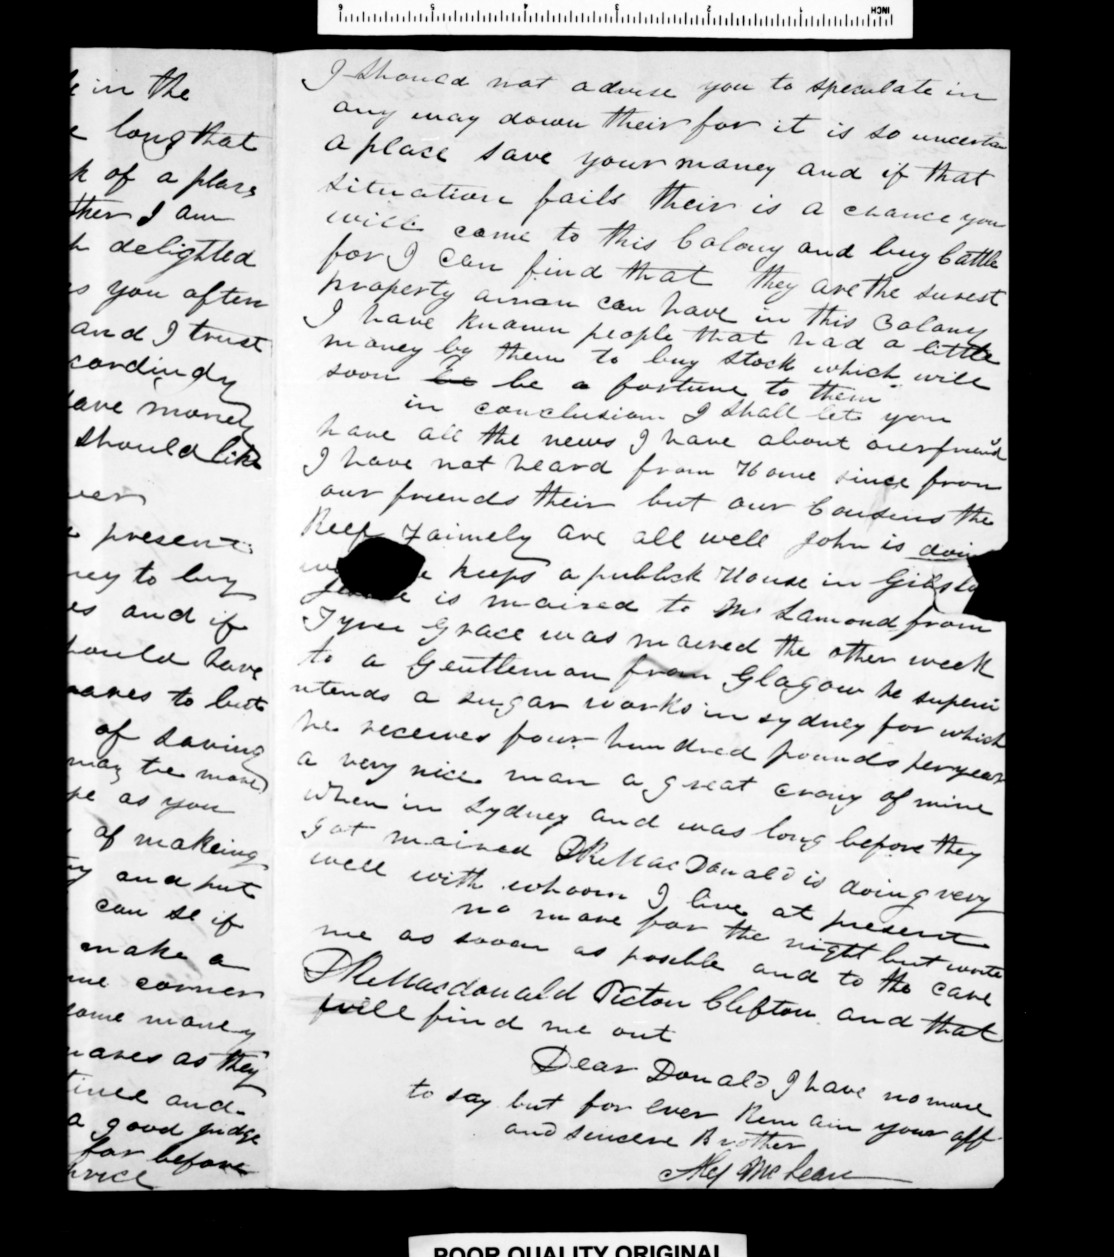 in the
long that
of a place
ther I am
h delighted
s you often
and I trust
cordindy
ave money
should like
ver
present
ney to buy
es and if
hould have
mares to but
of saving
may the more
pe as you
of makeing
ty and put
can se if
make a
me corner
some money
mares as they
tinue and
a good judge
far before
dvice
I should not advise you to speculate in
any way down their for it is so uncerta
a place save your money and if that
situation fails their is a chance you
will come to this Colony and buy Cattle
for I can find that they are the surest
property aman can have in this Colony
I have known people that had a little
money by them to buy stock which will
soon be be a fortune to them
in conclusion I shall let you
have all the news I have about our friend
I have not heard from Home since from
our friends their but our Cousins the
Reef Faimely are all well John is doin
we keeps a publick House in Gibs
is maired to Mr Lamond from
Tyree Grace was maired the other week
to a Gentleman from Glagow he superin
ntends a sugar works in sydney for which
he receives four hundred pounds per year
a very nice man a great crony of mine
when in Sydney and was long before they
got maired MacDonald is doing very
well with whoom I live at present
no more for the night but write
me as soon as posible and to the care
Macdonald Picton Clifton and that
will find me out
Dear Donald I have no more
to say but for ever Remain your aff
and sincere Brother
Alex McLean
INCH
1 2 3 4 5 6
POOR QUALITY ORIGINAL